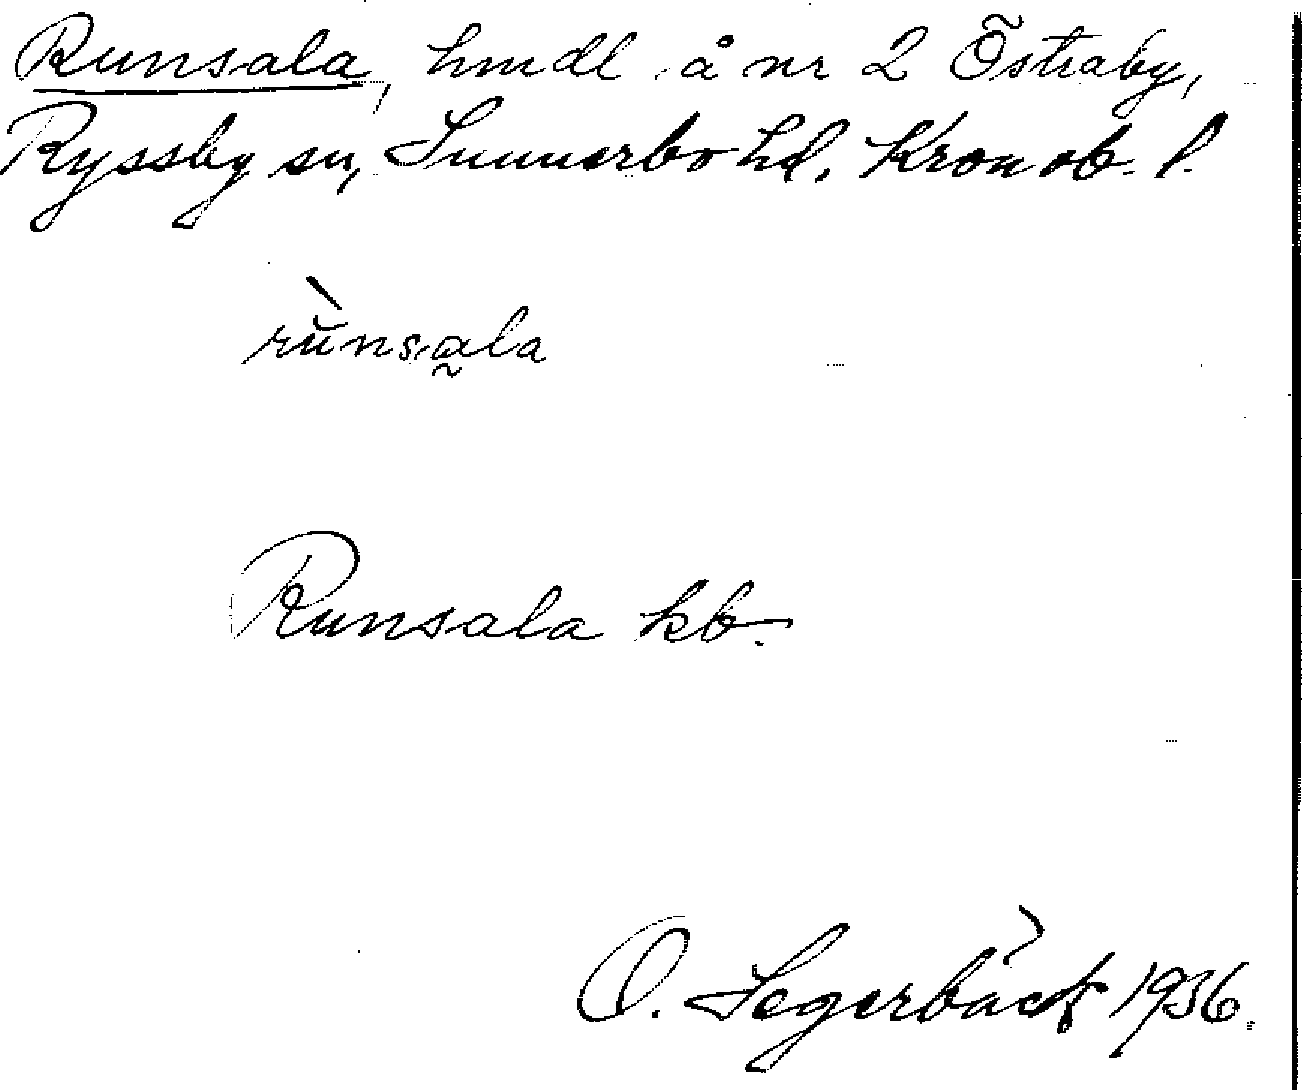 Runsala, hmdl å nr 2 Östraby,
Ryssby sn, Sunnerbo hd. Kronob. l.
rùnsa̰la
Runsala kb.
O. Segerbäck 1936.